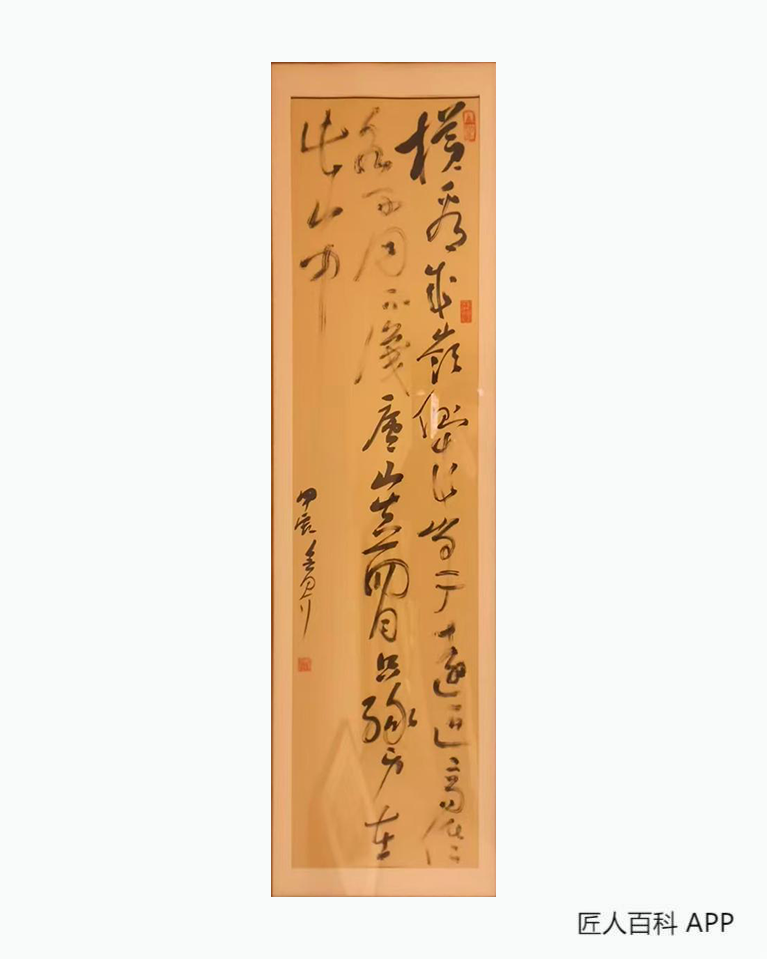 橫看成嶺側成峰遠近高低
各不同不識廬山真面目只緣身在
此山中
甲辰
匠人百科 APP